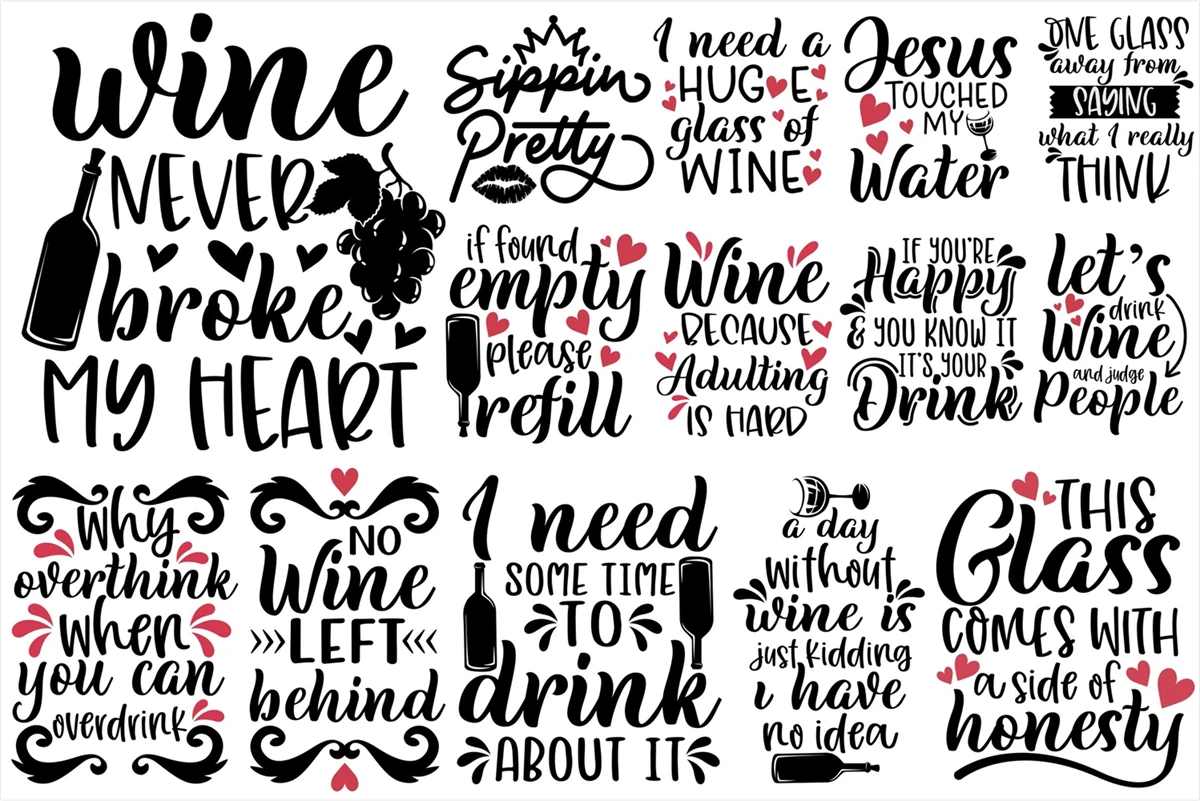 wine
NEVER
broke
MY HEART
Sippin
Pretty
I need a
HUGE
glass of
WINE
Jesus
TOUCHED
MY
Water
ONE GLASS
away from
SAYING
what I really
THINK
if found
empty
please
refill
Wine
BECAUSE
Adulting
IS HARD
IF YOU'RE
Happy
& YOU KNOW IT
IT'S YOUR
Drink
let's
drink
Wine
and judge
People
why
overthink
when
you can
overdrink
NO
Wine
LEFT
behind
I need
SOME TIME
TO
drink
ABOUT IT
a day
without
wine is
just kidding
i have
no idea
THIS
Glass
COMES WITH
a side of
honesty